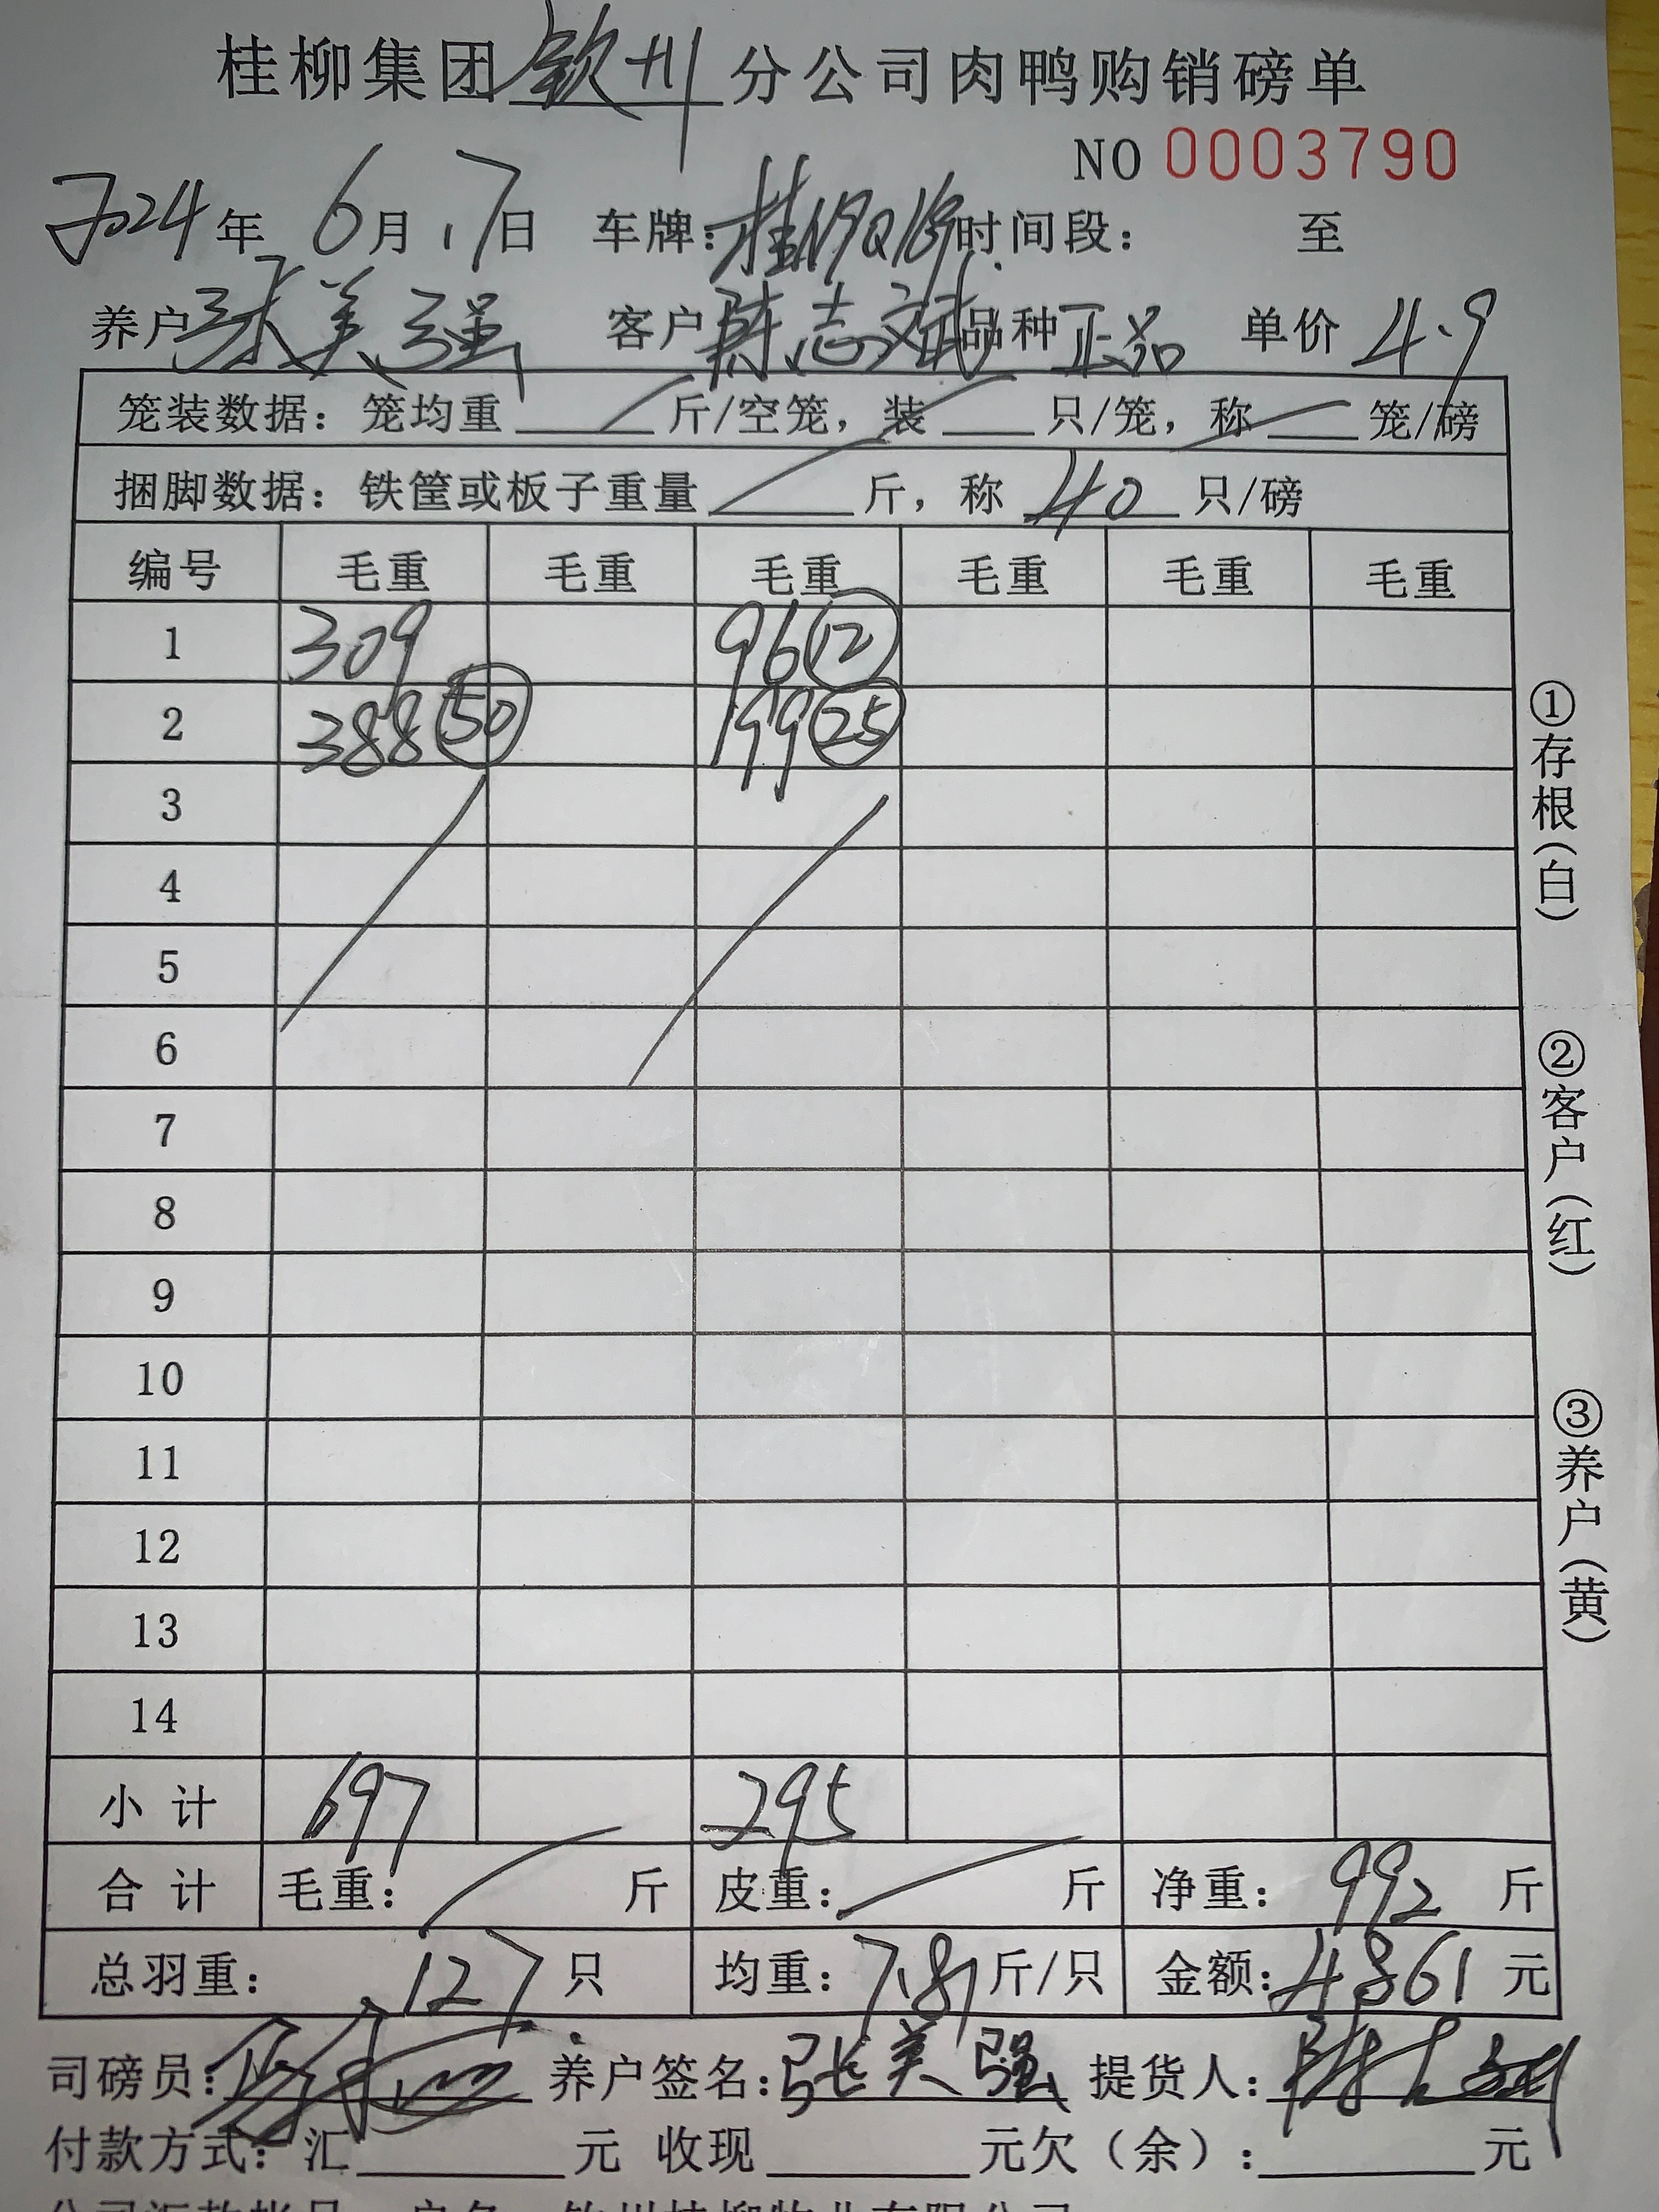 桂柳集团钦州分公司肉鸭购销磅单
NO 0003790
2024年 6月17日 车牌:桂N9Q 时间段: 至
养户 张美强 客户 陈志斌 品种 正品 单价 4.9
笼装数据: 笼均重 斤/空笼, 装 只/笼, 称 笼/磅
捆脚数据: 铁筐或板子重量 斤, 称 40 只/磅
编号 毛重 毛重 毛重 毛重 毛重 毛重
1 309 96 12
2 388 50 199 25
3
4
5
6
7
8
9
10
11
12
13
14
小计 697 295
合计 毛重: 斤 皮重: 斤 净重: 992 斤
总羽重: 127 只 均重: 7.81 斤/只 金额: 4861 元
司磅员: 养户签名: 张美强 提货人:
付款方式: 汇 元 收现 元欠(余): 元
①存根(白)
②客户(红)
③养户(黄)